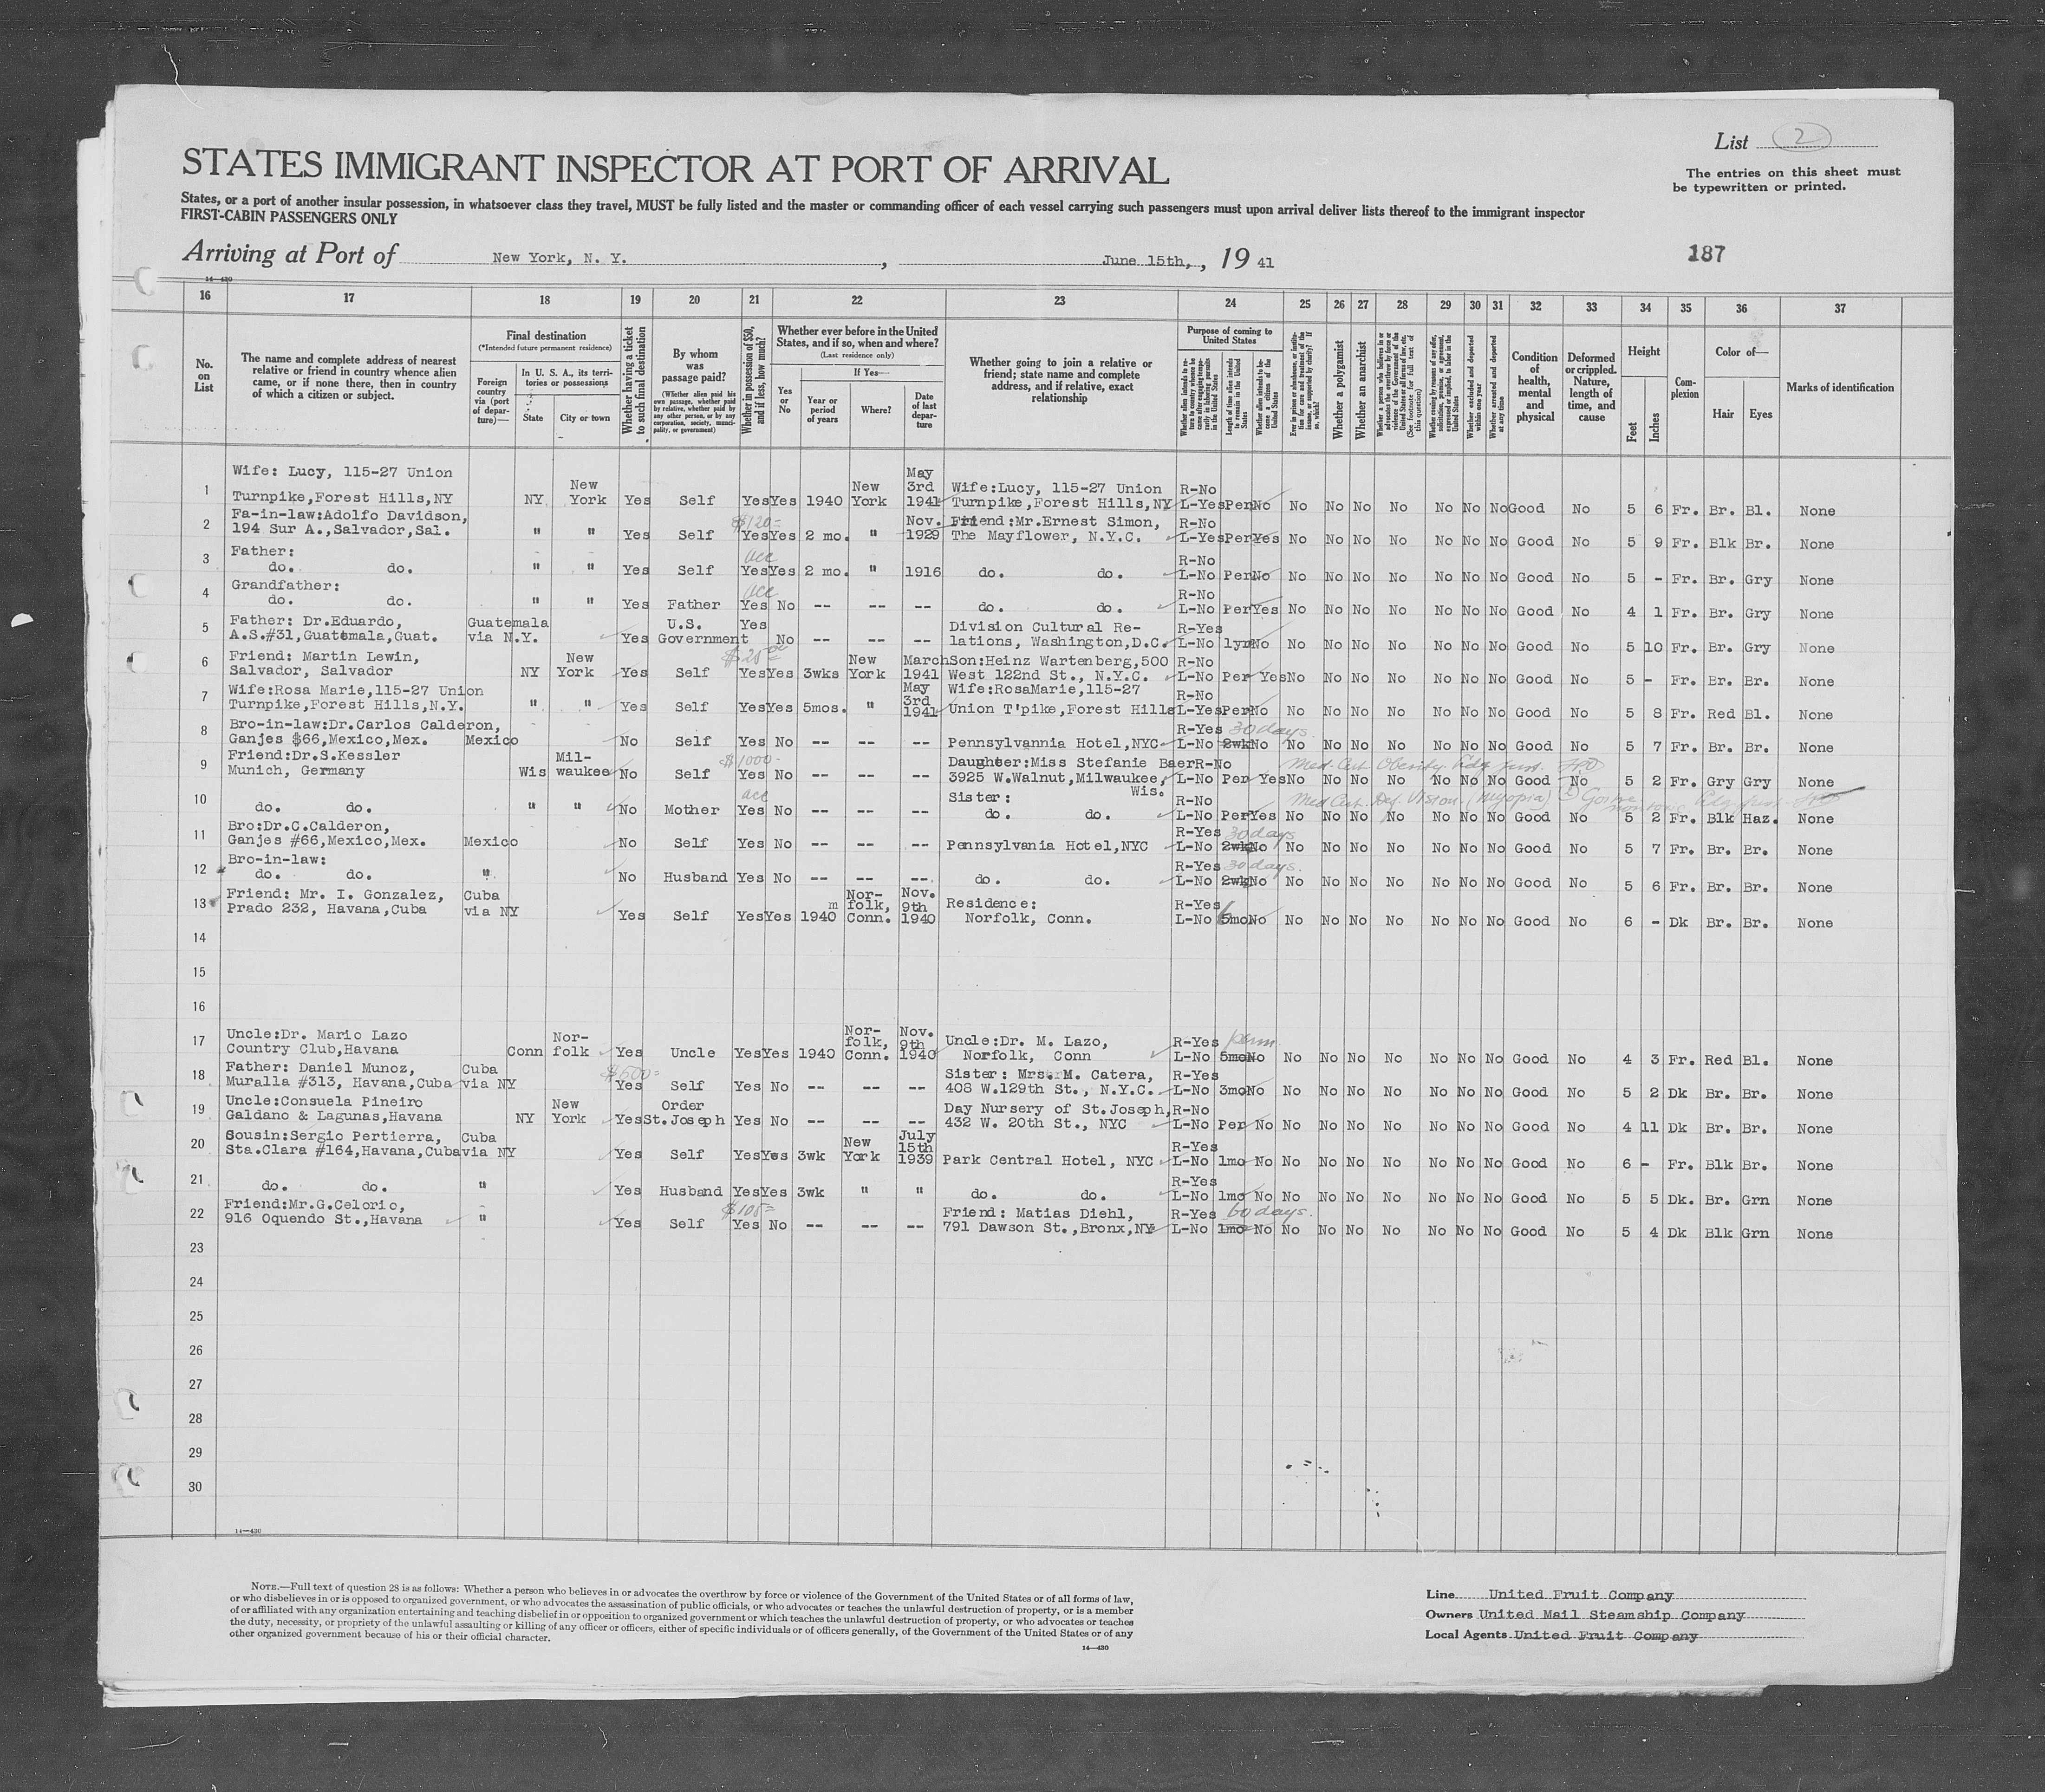 List 2
STATES IMMIGRANT INSPECTOR AT PORT OF ARRIVAL
The entries on this sheet must
be typewritten or printed.
States, or a port of another insular possession, in whatsoever class they travel, MUST be fully listed and the master or commanding officer of each vessel carrying such passengers must upon arrival deliver lists thereof to the immigrant inspector
FIRST-CABIN PASSENGERS ONLY
Arriving at Port of New York, N. Y., June 15th, , 19 41
187
14—430
16 17 18 19 20 21 22 23 24 25 26 27 28 29 30 31 32 33 34 35 36 37
No. on List
The name and complete address of nearest relative or friend in country whence alien came, or if none there, then in country of which a citizen or subject.
Final destination
(*Intended future permanent residence)
Foreign country via (port of departure)—
In U. S. A., its territories or possessions
State
City or town
Whether having a ticket to such final destination
By whom was passage paid?
(Whether alien paid his own passage, whether paid by relative, whether paid by any other person, or by any corporation, society, municipality, or government)
Whether in possession of $50, and if less, how much?
Whether ever before in the United States, and if so, when and where?
(Last residence only)
Yes or No
If Yes—
Year or period of years
Where?
Date of last departure
Whether going to join a relative or friend; state name and complete address, and if relative, exact relationship
Purpose of coming to United States
Whether alien intends to return to country whence he came after engaging temporarily in laboring pursuits in the United States
Length of time alien intends to remain in the United States
Whether alien intends to become a citizen of the United States
Ever in prison or almshouse, or institution for care and treatment of the insane, or supported by charity? If so, which?
Whether a polygamist
Whether an anarchist
Whether a person who believes in or advocates the overthrow by force or violence of the Government of the United States or all forms of law, etc. (See footnote for full text of this question)
Whether coming by reason of any offer, solicitation, promise, or agreement, expressed or implied, to labor in the United States
Whether excluded and deported within one year
Whether arrested and deported at any time
Condition of health, mental and physical
Deformed or crippled. Nature, length of time, and cause
Height
Feet
Inches
Complexion
Color of—
Hair
Eyes
Marks of identification
1 Wife: Lucy, 115-27 Union Turnpike,Forest Hills,NY NY New York Yes Self Yes Yes 1940 New York May 3rd 1941 Wife:Lucy, 115-27 Union Turnpike,Forest Hills,NY R-No L-Yes Per No No No No No No No No Good No 5 6 Fr. Br. Bl. None
2 Fa-in-law:Adolfo Davidson, 194 Sur A.,Salvador,Sal. " " Yes Self $120= Yes Yes 2 mo. " Nov. 1929 Friend:Mr.Ernest Simon, The Mayflower, N.Y.C. R-No L-Yes Per Yes No No No No No No No Good No 5 9 Fr. Blk Br. None
3 Father: do. do. " " Yes Self acc Yes Yes 2 mo. " 1916 do. do. R-No L-No Per No No No No No No No No Good No 5 - Fr. Br. Gry None
4 Grandfather: do. do. " " Yes Father acc Yes No -- -- -- do. do. R-No L-No Per Yes No No No No No No No Good No 4 1 Fr. Br. Gry None
5 Father: Dr.Eduardo, A.S.#31,Guatemala,Guat. Guatemala via N.Y. Yes U.S. Government Yes No -- -- -- Division Cultural Relations, Washington,D.C. R-Yes L-No 1yr No No No No No No No No Good No 5 10 Fr. Br. Gry None
6 Friend: Martin Lewin, Salvador, Salvador NY New York Yes Self $25 Yes Yes 3wks New York March 1941 Son:Heinz Wartenberg,500 West 122nd St., N.Y.C. R-No L-No Per Yes No No No No No No No Good No 5 - Fr. Br. Br. None
7 Wife:Rosa Marie,115-27 Union Turnpike,Forest Hills,N.Y. " " Yes Self Yes Yes 5mos. " May 3rd 1941 Wife:RosaMarie,115-27 Union T'pike,Forest Hills R-No L-Yes Per No No No No No No No No Good No 5 8 Fr. Red Bl. None
8 Bro-in-law:Dr.Carlos Calderon, Ganjes $66,Mexico,Mex. Mexico No Self Yes No -- -- -- Pennsylvannia Hotel,NYC R-Yes 30 days L-No 2wk No No No No No No No No Good No 5 7 Fr. Br. Br. None
9 Friend:Dr.S.Kessler Munich, Germany Wis Milwaukee No Self $1000- Yes No -- -- -- Daughter:Miss Stefanie Baer 3925 W.Walnut,Milwaukee, Wis. R-No L-No Per Yes No No No No No No No Good No 5 2 Fr. Gry Gry None
Med. Cert. Obesity
10 do. do. " " No Mother acc Yes No -- -- -- Sister: do. do. R-No L-No Per Yes No No No No No No No Good No 5 2 Fr. Blk Haz. None
Med Cert. Def. Vision (Myopia)
11 Bro:Dr.C.Calderon, Ganjes #66,Mexico,Mex. Mexico No Self Yes No -- -- -- Pennsylvania Hotel,NYC R-Yes 30 days L-No 2wk No No No No No No No No Good No 5 7 Fr. Br. Br. None
12 Bro-in-law: do. do. " No Husband Yes No -- -- -- do. do. R-Yes 30 days. L-No 2wk No No No No No No No No Good No 5 6 Fr. Br. Br. None
13 Friend: Mr. I. Gonzalez, Prado 232, Havana,Cuba Cuba via NY Yes Self Yes Yes m 1940 Norfolk, Conn. Nov. 9th 1940 Residence: Norfolk, Conn. R-Yes L-No 5mo No No No No No No No No Good No 6 - Dk Br. Br. None
14
15
16
17 Uncle:Dr. Mario Lazo Country Club,Havana Conn Norfolk Yes Uncle Yes Yes 1940 Norfolk, Conn. Nov. 9th 1940 Uncle:Dr. M. Lazo, Norfolk, Conn R-Yes perm. L-No 5mo No No No No No No No No Good No 4 3 Fr. Red Bl. None
18 Father: Daniel Munoz, Muralla #313, Havana,Cuba Cuba via NY $500= Yes Self Yes No -- -- -- Sister: Mrs. M. Catera, 408 W.129th St., N.Y.C. R-Yes L-No 3mo No No No No No No No No Good No 5 2 Dk Br. Br. None
19 Uncle:Consuela Pineiro Galdano & Lagunas,Havana NY New York Yes Order St.Joseph Yes No -- -- -- Day Nursery of St.Joseph, 432 W. 20th St., NYC R-No L-No Per No No No No No No No No Good No 4 11 Dk Br. Br. None
20 Sousin:Sergio Pertierra, Sta.Clara #164,Havana,Cuba Cuba via NY Yes Self Yes Yes 3wk New York July 15th 1939 Park Central Hotel, NYC R-Yes L-No 1mo No No No No No No No No Good No 6 - Fr. Blk Br. None
21 do. do. " Yes Husband Yes Yes 3wk " " do. do. R-Yes L-No 1mo No No No No No No No No Good No 5 5 Dk. Br. Grn None
22 Friend:Mr.G.Celorio, 916 Oquendo St.,Havana " Yes Self $105= Yes No -- -- -- Friend: Matias Diehl, 791 Dawson St.,Bronx,NY R-Yes 60 days. L-No 1mo No No No No No No No No Good No 5 4 Dk Blk Grn None
23
24
25
26
27
28
29
30
14—430
NOTE.—Full text of question 28 is as follows: Whether a person who believes in or advocates the overthrow by force or violence of the Government of the United States or of all forms of law,
or who disbelieves in or is opposed to organized government, or who advocates the assassination of public officials, or who advocates or teaches the unlawful destruction of property, or is a member
of or affiliated with any organization entertaining and teaching disbelief in or opposition to organized government or which teaches the unlawful destruction of property, or who advocates or teaches
the duty, necessity, or propriety of the unlawful assaulting or killing of any officer or officers, either of specific individuals or of officers generally, of the Government of the United States or of any
other organized government because of his or their official character.
14—430
Line United Fruit Company
Owners United Mail Steamship Company
Local Agents United Fruit Company